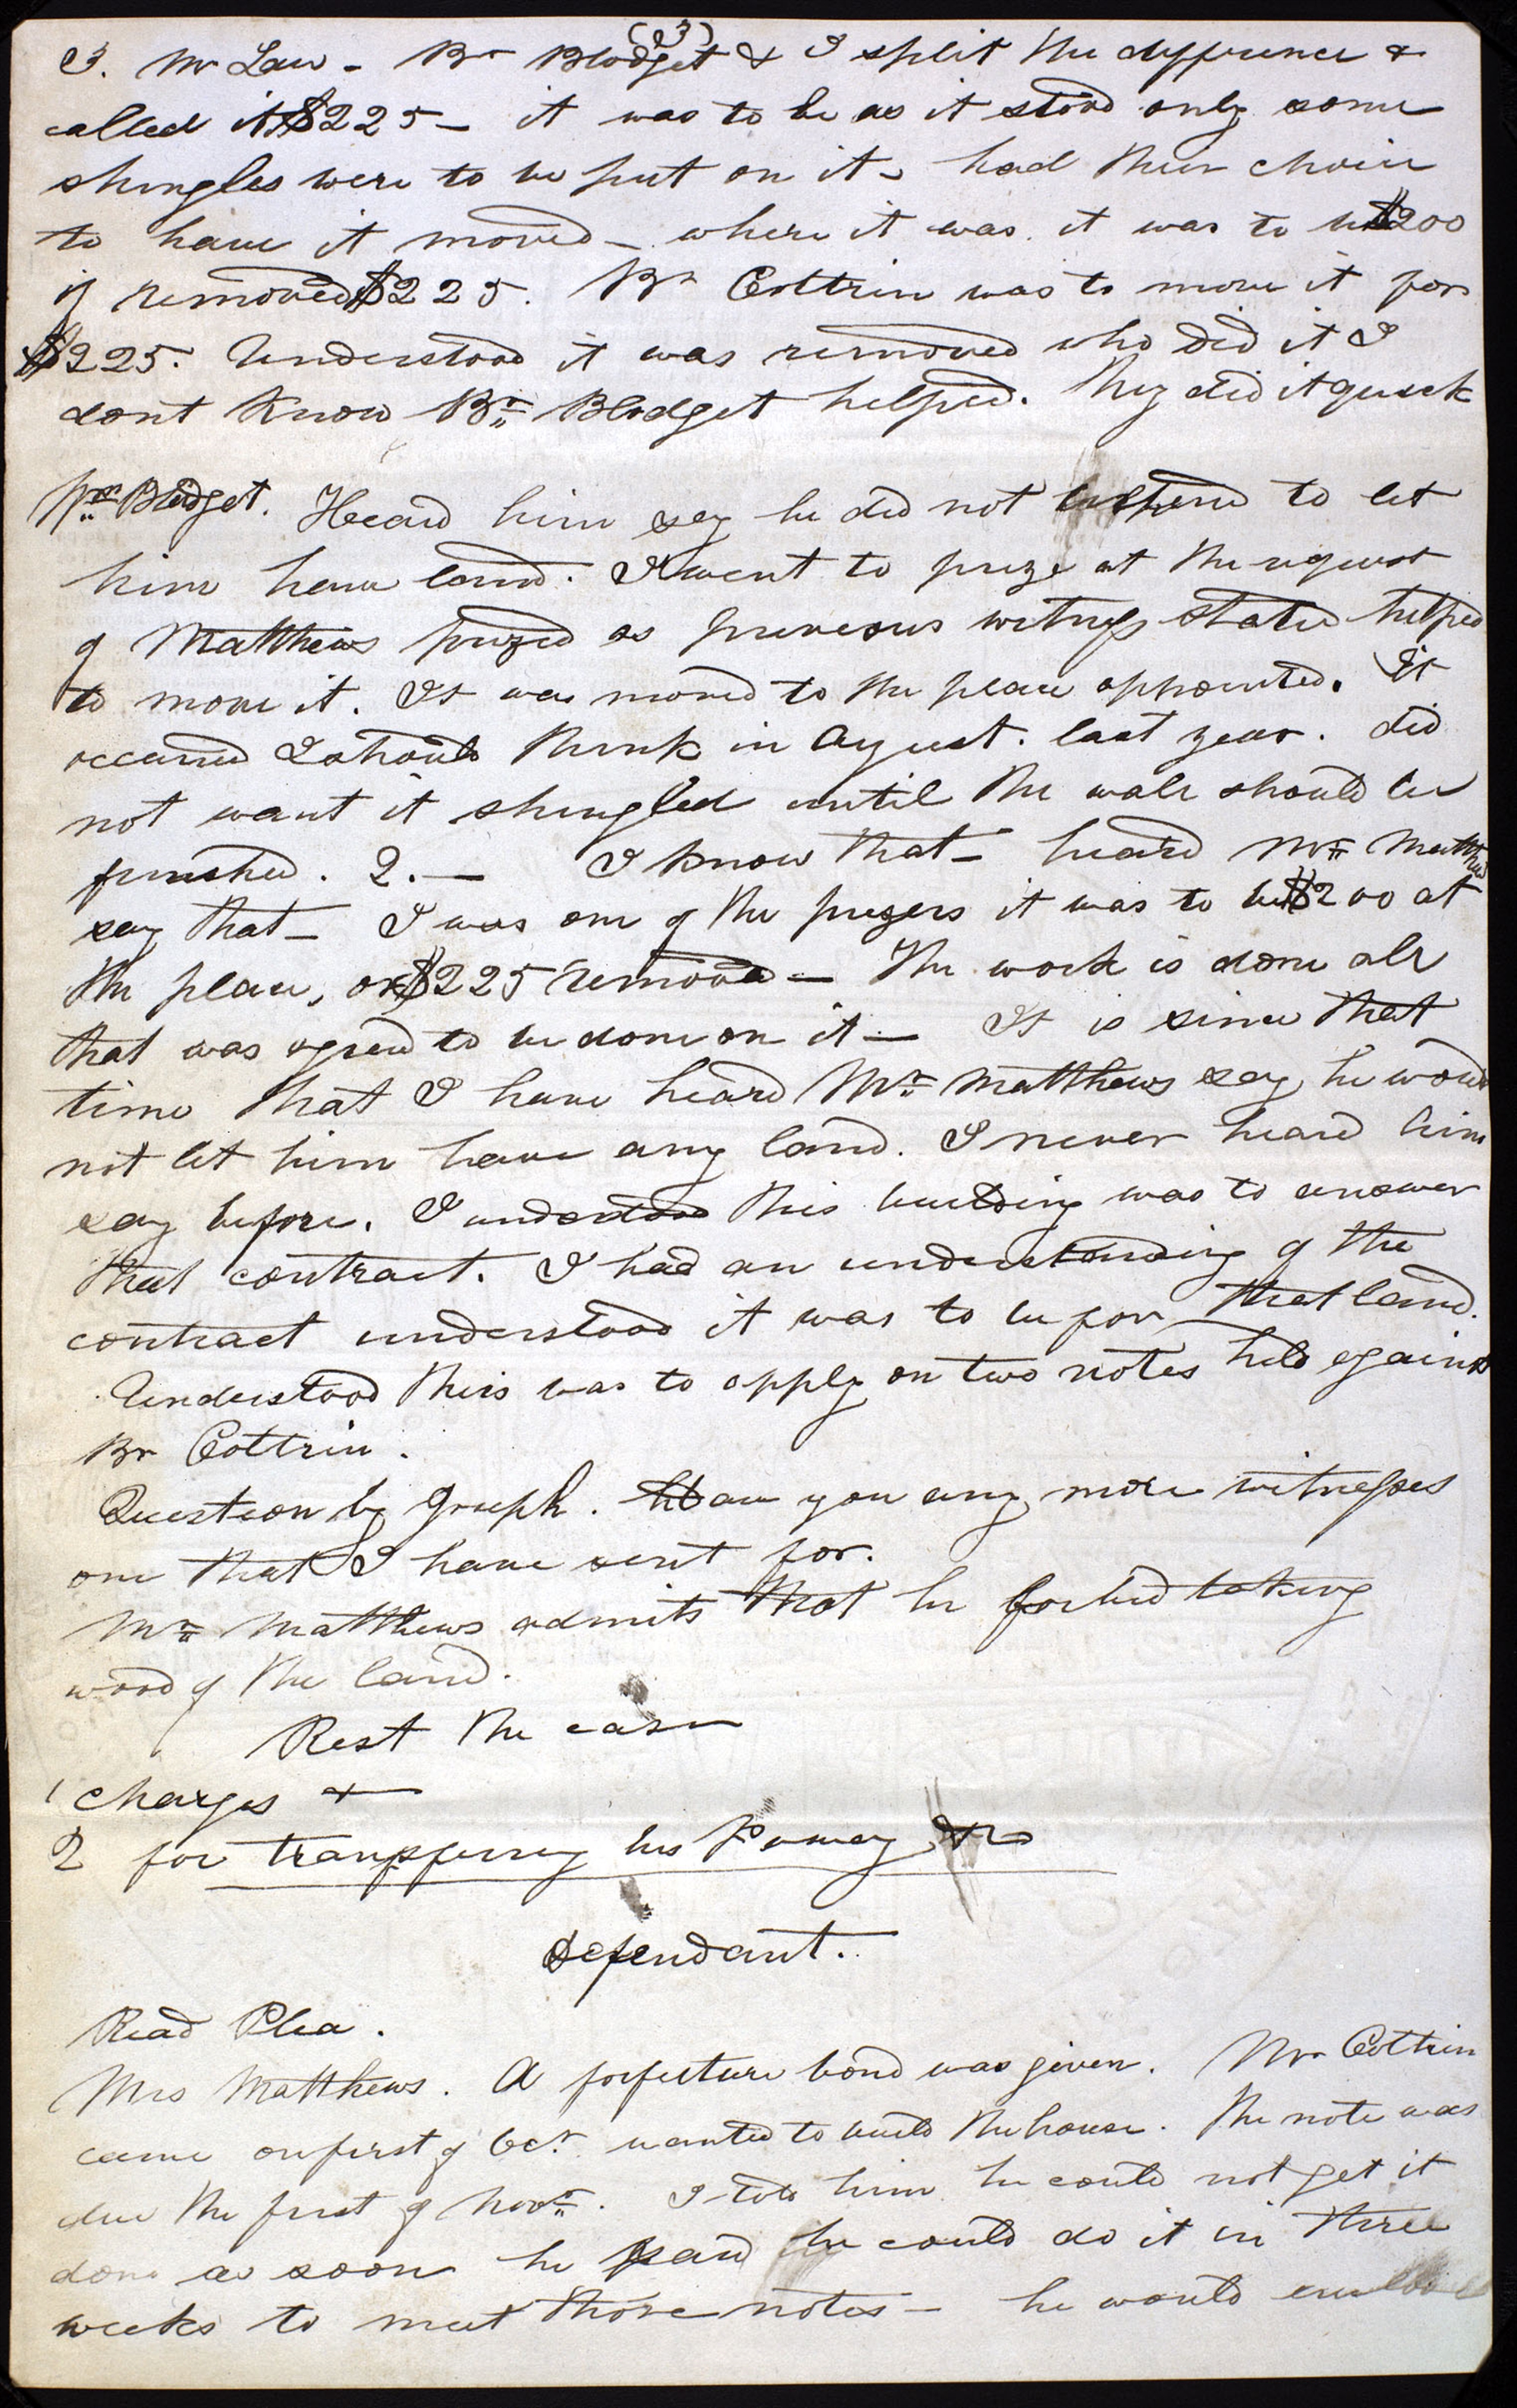 (3)
3. Mr Law – Br Blodget & I split the difference &
called it $225 – it was to be as it stood only some
shingles were to be put on it – had their choice
to have it moved – where it was it was to be $200
if removed $225. Br Cottrin was to move it for
$225. Understood it was removed who did it I
dont know Br Blodget helped. They did it quick
Br Blodget. Heard him say he did not intend to let
him have land. I went to prize at the request
of Matthews prized as previous witness stated helped
to move it. It was moved to the place appointed. It
occurred I should think in August. last year. did
not want it shingled until the wall should be
finished. 2. – I know that – heard Mr Matthews
say that – I was one of the prizers it was to be $200 at
the place, or $225 removed – The work is done all
that was agreed to be done on it – It is since that
time that I have heard Mr Matthews say he would
not let him have any land. I never heard him
say before. I understood this building was to answer
that contract. I had an understanding of the
contract understood it was to be for that land.
Understood this was to apply on two notes held against
Br Cottrin.
Question by Joseph. Have you any more witnesses
one that I have sent for.
Mr Matthews admits that he forbid taking
wood of the land.
Rest the case
1 Charges &
2 for transferring his &c
Defendant.
Read Plea.
Mrs Matthews. A forfeiture bond was given. Mr Cottrin
came on first of Oct. wanted to build the house. The note was
due the first of Novr. I told him he could not get it
done as soon he said he could do it in three
weeks to meet those notes – he would